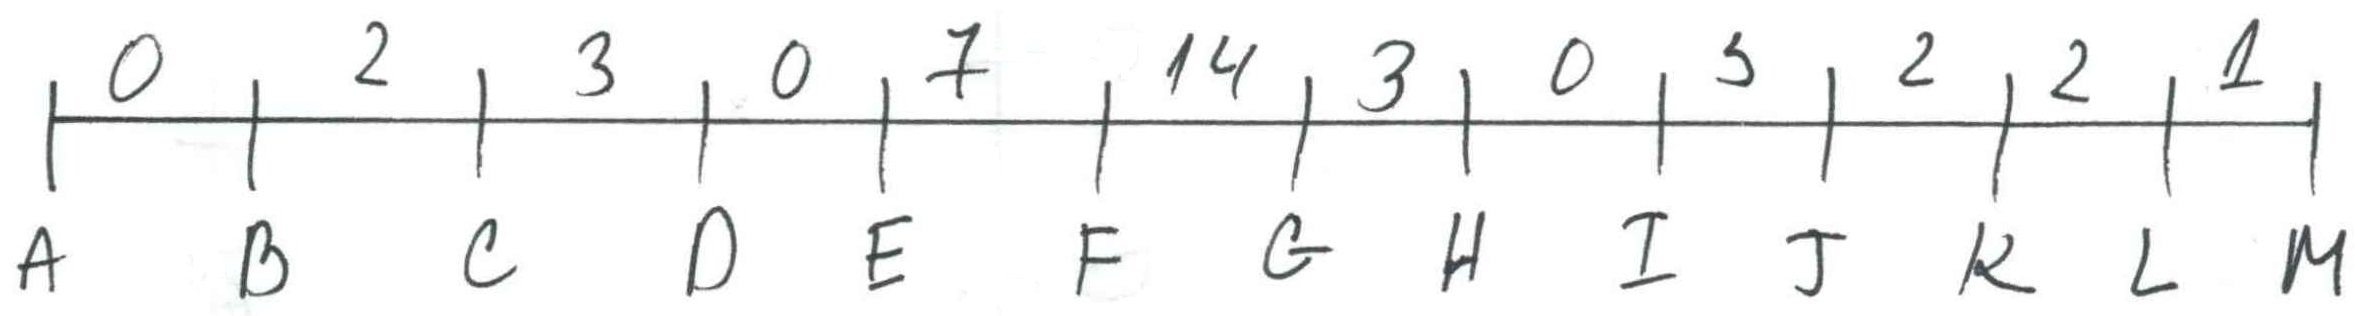 0 2 3 0 7 14 3 0 5 2 2 1
A B C D E F G H I J K L M